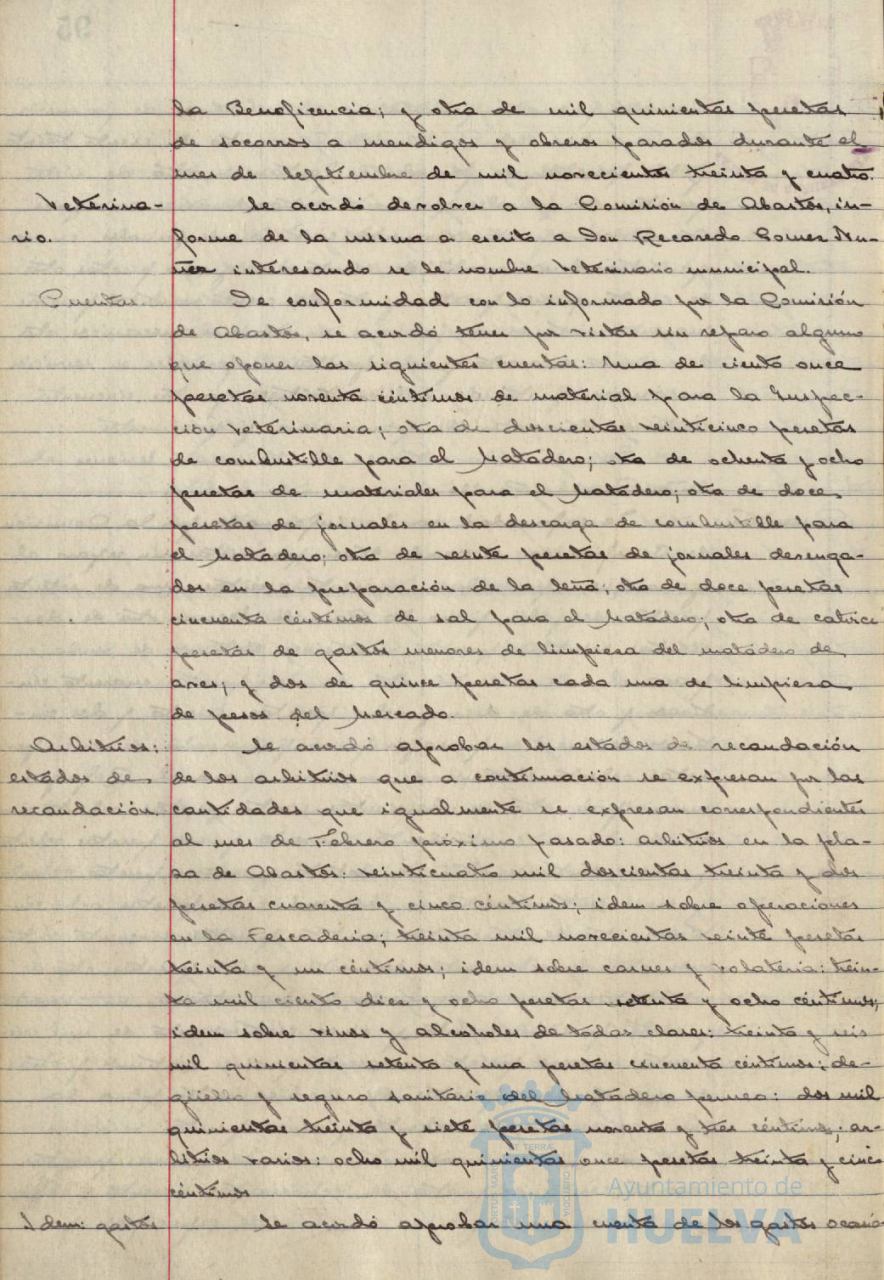 la Beneficencia; y otra de mil quinientas pesetas
de socorros a mendigos y obreros parados durante el
mes de Septiembre de mil novecientos treinta y cuatro.
Veterina-
rio.
Se acordó devolver a la Comisión de Abastos, in-
forme de la misma a escrito a Don Recaredo Gomez Nu-
ñez interesando se le nombre Veterinario municipal.
Cuentas.
De conformidad con lo informado por la Comisión
de Abastos, se acordó tener por vistas sin reparo alguno
que oponer las siguientes cuentas: Una de ciento once
pesetas noventa céntimos de material para la Inspec-
ción Veterinaria; otra de doscientas veinticinco pesetas
de combustible para el Matadero; otra de ochenta y ocho
pesetas de materiales para el Matadero; otra de doce
pesetas de jornales en la descarga de combustible para
el Matadero; otra de veinte pesetas de jornales devenga-
dos en la preparación de la leña; otra de doce pesetas
cincuenta céntimos de sal para el Matadero; otra de catorce
pesetas de gastos menores de limpieza del matadero de
aves; y dos de quince pesetas cada una de limpieza
de pesos del Mercado.
Arbitrios:
estados de
recaudación.
Se acordó aprobar los estados de recaudación
de los arbitrios que a continuación se expresan por las
cantidades que igualmente se expresan correspondientes
al mes de Febrero próximo pasado: arbitrios en la pla-
za de Abastos: veinticuatro mil doscientas treinta y dos
pesetas cuarenta y cinco céntimos; idem sobre operaciones
en la Pescaderia; treinta mil novecientas veinte pesetas
treinta y un céntimos; idem sobre carnes y volateria: trein-
ta mil ciento diez y ocho pesetas setenta y ocho céntimos;
idem sobre vinos y alcoholes de todas clases: treinta y seis
mil quinientas setenta y una pesetas cincuenta céntimos; de-
güello y seguro sanitario del Matadero: dos mil
quinientas treinta y siete pesetas noventa y tres céntimos; ar-
bitrios varios: ocho mil quinientas once pesetas treinta y cinco
céntimos
Idem: gastos
Se acordó aprobar una cuenta de los gastos ocasio-
Ayuntamiento de
HUELVA